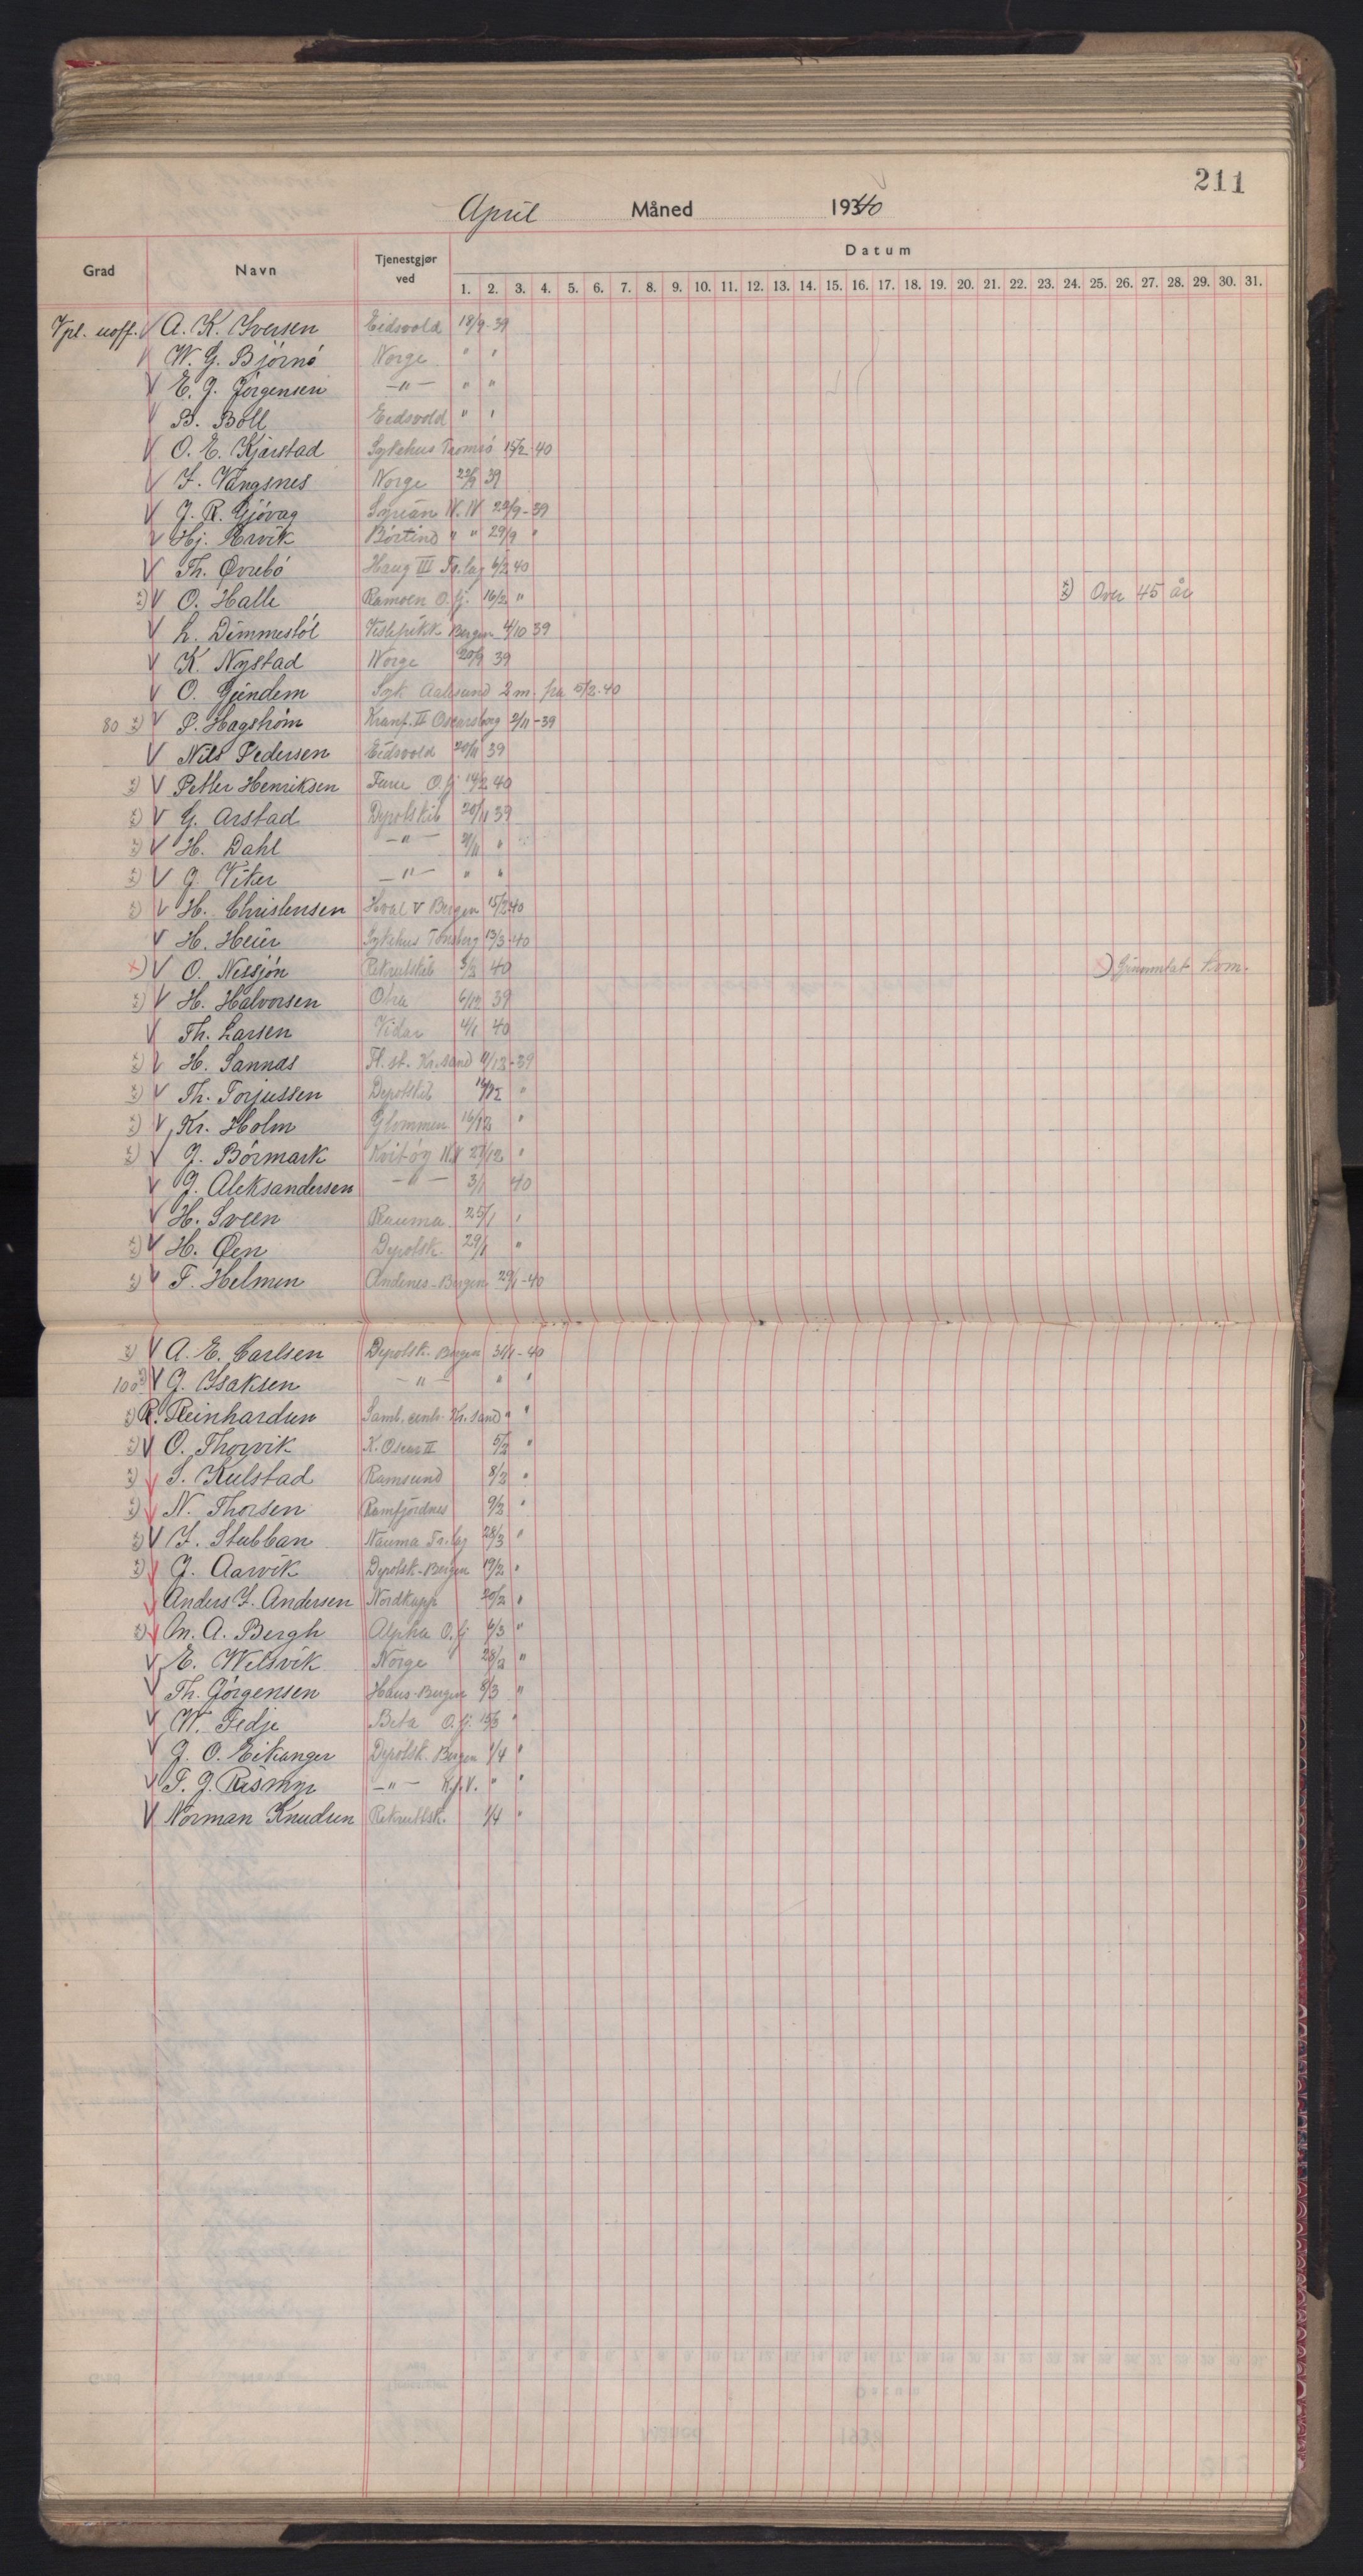 211
April Måned 1940
Grad Navn Tjenestgjør ved Datum
1. 2. 3. 4. 5. 6. 7. 8. 9. 10. 11. 12. 13. 14. 15. 16. 17. 18. 19. 20. 21. 22. 23. 24. 25. 26. 27. 28. 29. 30. 31.
Vpl. uoff. V A. K. Iversen Eidsvold 18/9-39
V W. G. Bjørnø Norge " "
V E. J. Jørgensen -"- " "
V B. Boll Eidsvold " "
V O. E. Kjærstad Sykehus Tromsø 15/2 40
V I. Vangsnes Norge 22/9 39
V J. R. Gjövag Syrian N.N 23/9-39
V Hj. Ervik Börtind " " 29/9 "
V Th. Øvrebö Haug III Tr.lag 6/2 40
x) V O. Halle Ramoen O.fj. 16/2 " x) Over 45 år
V L. Dimmestöl Veslepikk Bergen 4/10 39
V K. Nystad Norge 20/9 39
V O. Gjendem Syk Aalesund 2 m. fra 5/2-40
80 x) V P. Hagström Kranf. II Oscarsborg 2/11-39
V Nils Pedersen Eidsvold 20/11 39
x) V Petter Henriksen Furu O.fj 14/2 40
x) V G. Arstad Depotskib 20/11 39
x) V H. Dahl -"- 21/11 "
x) V J. Viker -"- " "
x) V H. Christensen Hval V Bergen 15/2 40
V H. Heier Sykehus Tønsberg 13/3-40
x) V O. Nessjön Rekrutskib 3/3 40 x) Gjennomlat kom.
x) V H. Halvorsen Otra 6/12 39
V Th. Larsen Vidar 4/1 40
x) V H. Sannas Fl. st. Kr.sand 11/12-39
x) V Th. Torjussen Depotskib 16/12 "
x) V Kr. Holm Glommen 16/12 "
x) V J. Börmark Kvitöy N.V 27/12 "
V J. Aleksandersen -"- 3/1 40
V H. Sveen Rauma 25/1 "
x) V H. Øen Depotsk. 29/1 "
x) V F. Helmen Andenes-Bergen 29/1-40
x) V A. E. Carlsen Depotsk. Bergen 31/1-40
100 x) V J. Isaksen -"- " "
x) R. Reinhardsen Samb. centr. Kr.sand " "
x) V O. Thorvik K. Oscar II 5/2 "
x) V S. Kulstad Ramsund 8/2 "
x) V N. Thorsen Ramfjordnes 9/2 "
x) V I. Stubban Nauma Tr.lag 28/3 "
x) V J. Aarvik Depotsk-Bergen 19/2 "
V Anders I. Andersen Nordkapp 20/2 "
x) V M. A. Bergh Alpha O.fj 6/3 "
V E. Welsvik Norge 28/2 "
V Th. Jörgensen Haus-Bergen 8/3 "
V W. Fedje Beta O.fj. 15/3 "
V J. O. Eikanger Depotsk. Bergen 1/4 "
V T. J. Rismyr -"- K.j.V. " "
V Norman Knudsen Rekruttsk. 1/4 "